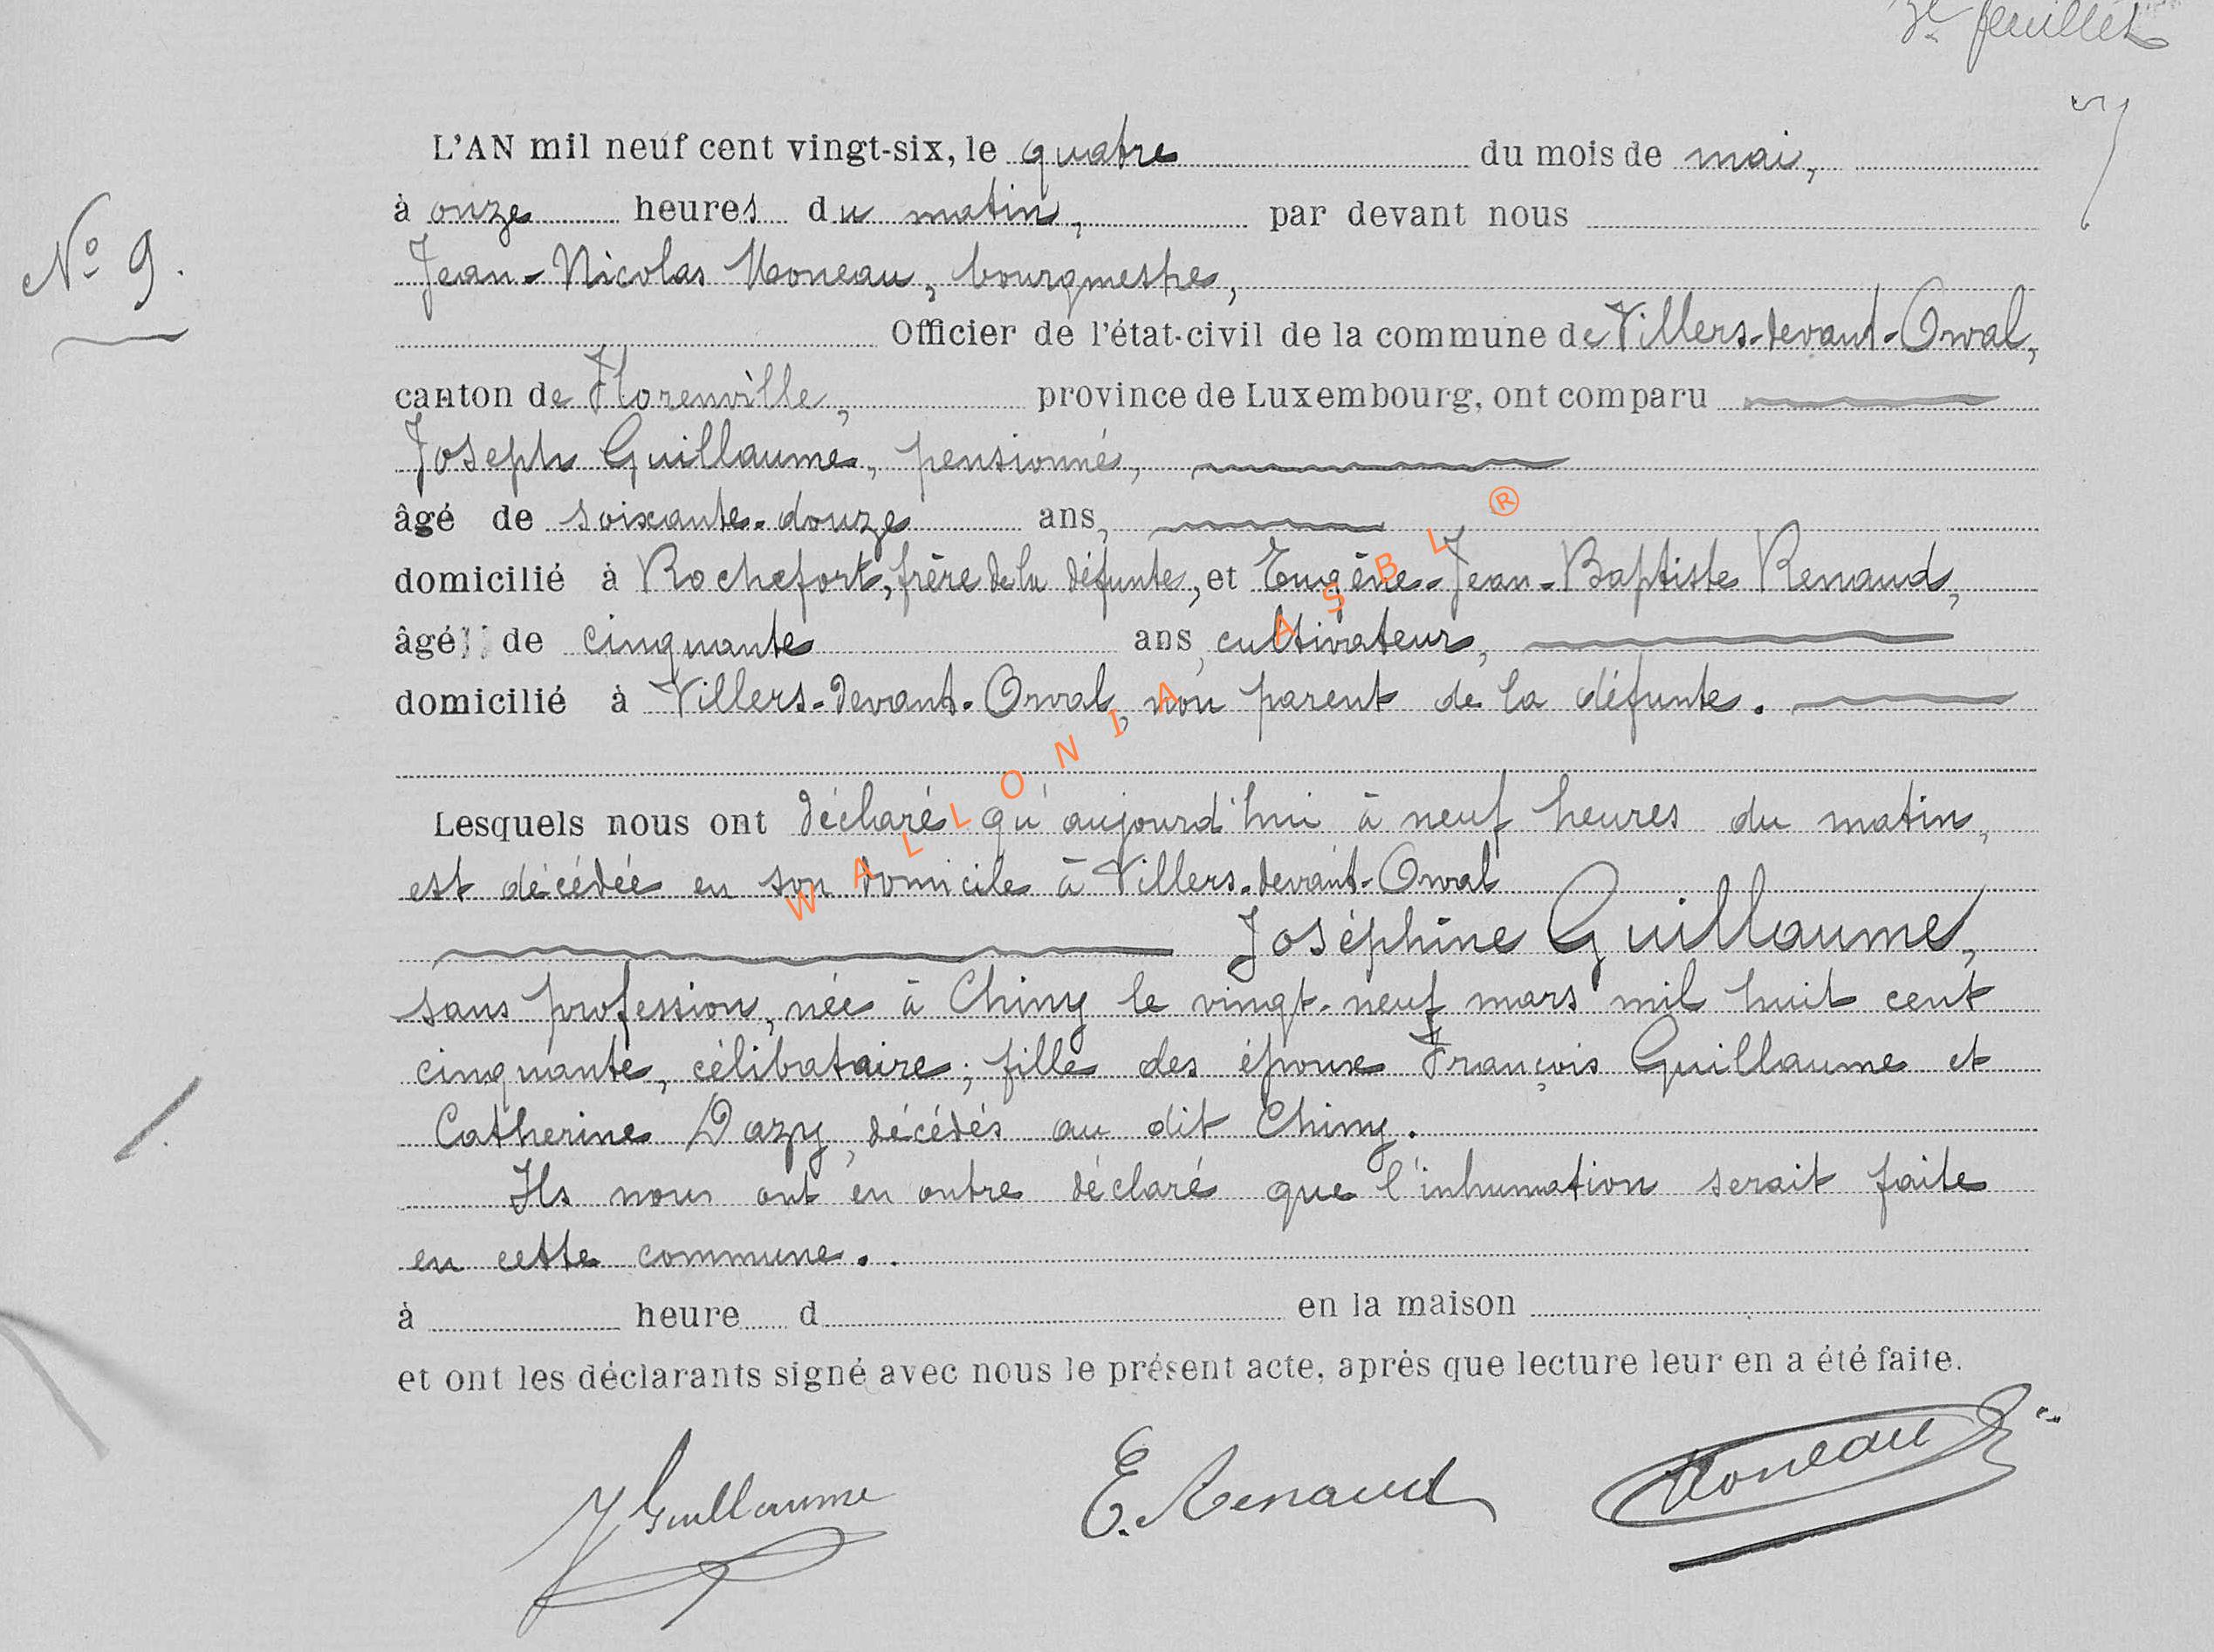 3e feuillet
L'AN mil neuf cent vingt-six, le quatre du mois de mai,
à onze heures du matin, par devant nous
N° 9.
Jean-Nicolas Moneau, bourgmestre,
Officier de l'état-civil de la commune de Villers-devant-Orval,
canton de Florenville, province de Luxembourg, ont comparu
Joseph Guillaume, pensionné,
âgé de soixante-douze ans,
domicilié à Rochefort, frère de la défunte, et Eugène-Jean-Baptiste Renaud,
âgé de cinquante ans, cultivateur,
domicilié à Villers-devant-Orval, non parent de la défunte.
Lesquels nous ont déclaré qu'aujourd'hui à neuf heures du matin,
est décédée en son domicile à Villers-devant-Orval
Joséphine Guillaume,
sans profession, née à Chiny le vingt-neuf mars mil huit cent
cinquante, célibataire; fille des époux François Guillaume et
Catherine Dazy, décédés au dit Chiny.
Ils nous ont en outre déclaré que l'inhumation serait faite
en cette commune.
à heure d en la maison
et ont les déclarants signé avec nous le présent acte, après que lecture leur en a été faite.
J Guillaume E. Renaud Moneau
WALLONIA ASBL ®